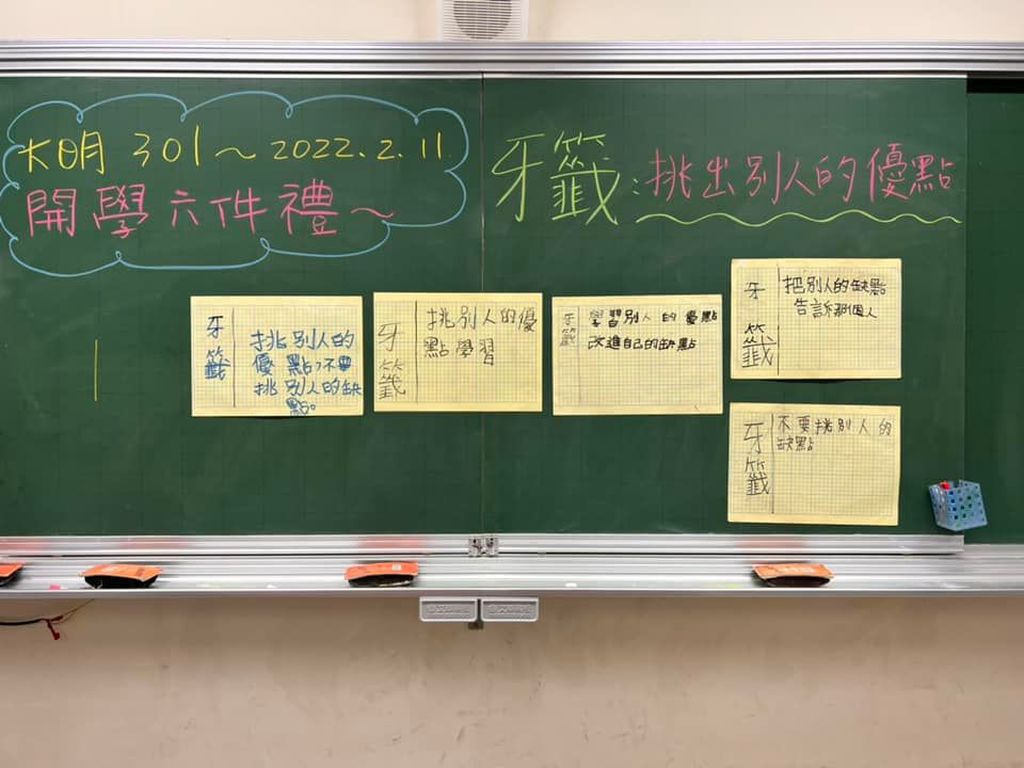 大明 301～2022.2.11.
開學六件禮～
牙籤:挑出別人的優點
牙籤
挑別人的
優點,不要
挑別人的缺
點。
牙籤
挑別人的優
點學習
牙籤
學習別人的優點
改進自己的缺點
牙籤
把別人的缺點
告訴那個人
牙籤
不要挑別人的
缺點